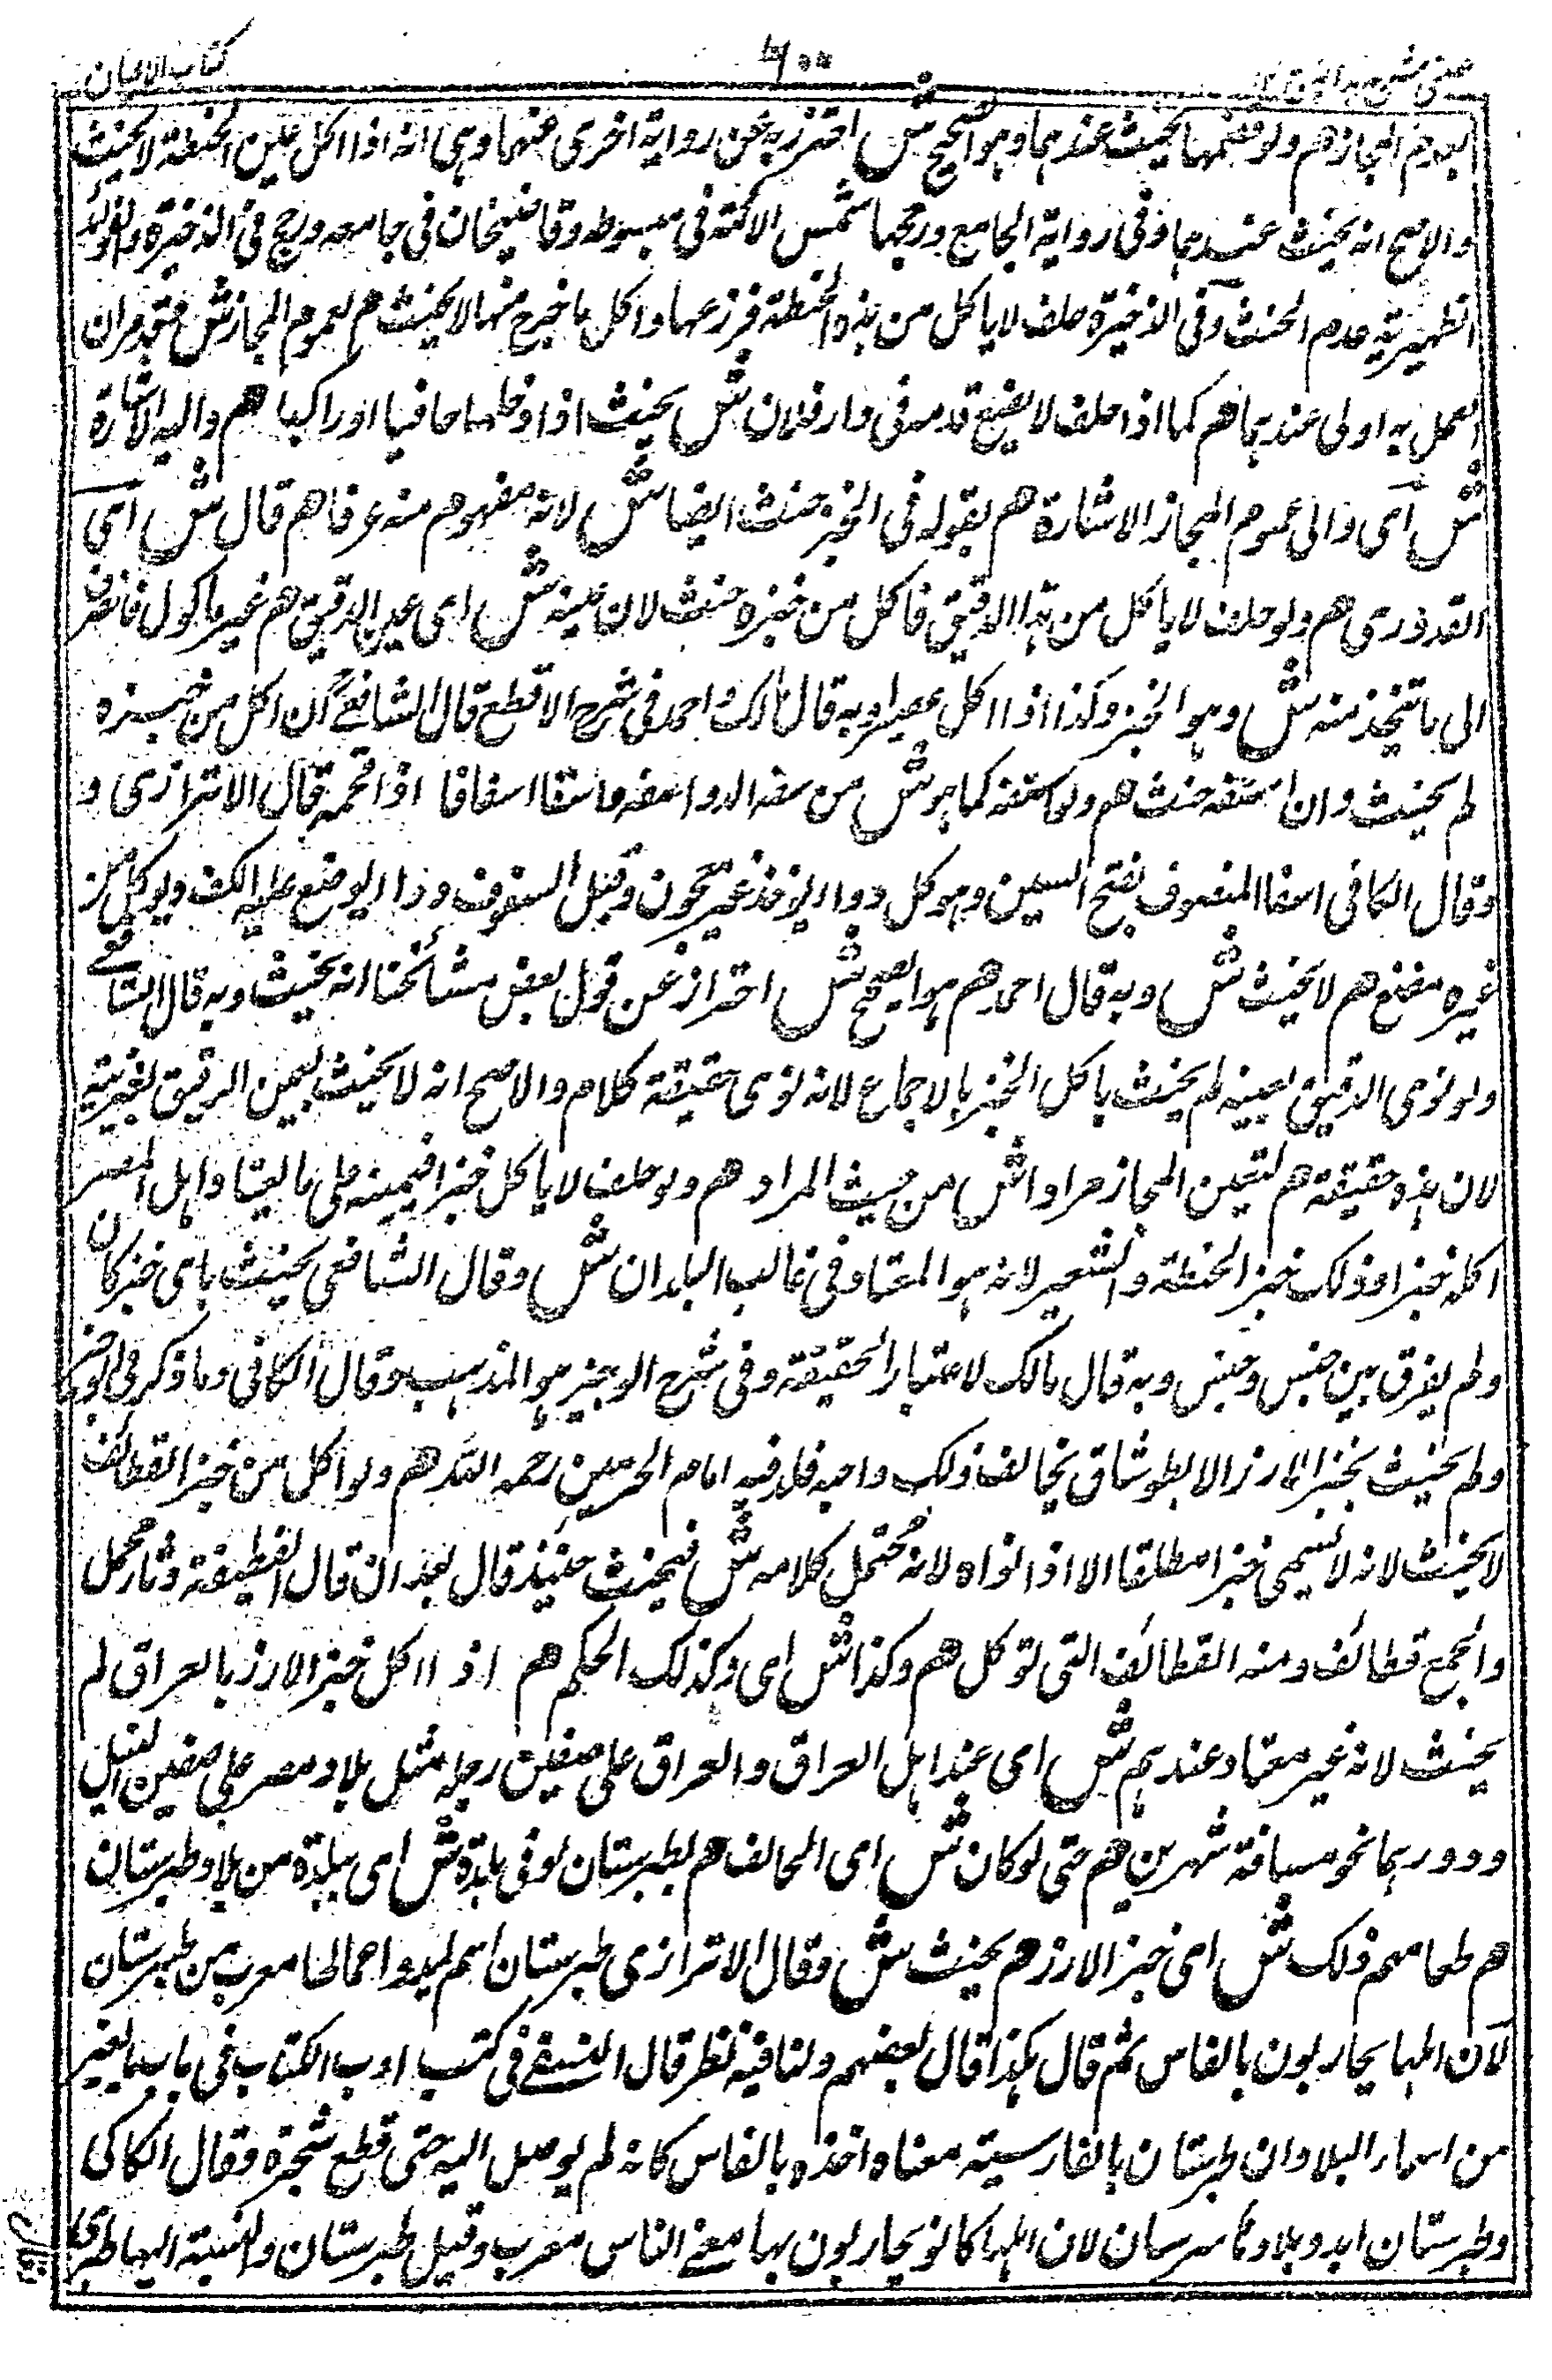 كتاب الايمان
۶۰۰
لعموم المجاز هم ولو قضمها يحنث عندهما وهو الصحيح ش احترز به عن رواية اخرى عنهما وهى انه اذا اكل عين الحنطة لا يحنث
والاصح انه يحنث عندهما وفى رواية الجامع ورجحها شمس الائمة فى مبسوطه وقاضيخان فى جامعه ورجح فى الذخيرة والفوائد
الظهيرية عدم الحنث وفى الذخيرة حلف لا ياكل من هذه الحنطة فزرعها واكل ما خرج منها لا يحنث هم لعموم المجاز ش فتقدمر ان
العمل به اولى عندهما هم كما اذا حلف لا يضع قدمه فى دار فلان ش يحنث اذا دخلها حافيا او راكبا هم واليه الاشارة
ش اى والى عموم المجاز الاشارة هم بقوله فى الخبز حنث ايضا ش لانه مفهوم منه عرفا هم قال ش اى
القدورى هم ولو حلف لا ياكل من هذا الدقيق فاكل من خبزه حنث لان عينه ش اى عين الدقيق هم غير ماكول فانصرف
الى ما يتخذ منه ش وهو الخبز وكذا اذا اكل عصيدا وبه قال مالك واحمد فى شرح الاقطع قال الشافعي ان اكل من خبزه
لم يحنث وان استفه حنث هم ولو استفه كما هو ش من سفه الدوا سفه واستفا اسفافا اذا قحمه قال الاترازى و
وقال الكافى اسفا المنصوف بفتح السين وهو كل دواء يوخذ غير معجون وقيل السفوف دواء يوضع عليه الكف ويوكل من
غيره مضغ هم لا يحنث ش وبه قال احمد هم هو الصحيح ش احتراز عن قول بعض مشائخنا انه يحنث وبه قال الشافعى
ولو نوى الدقيق بعينه لم يحنث باكل الخبز بالاجماع لانه نوى حقيقة كلام والاصح انه لا يحنث بعين الدقيق بغير نية
لان هذه حقيقة هم لتعين المجاز مرادا ش من حيث المراد هم ولو حلف لا ياكل خبزا فيمينه على ما يعتاد اهل المصر
اكله خبزا وذلك خبز الحنطة والشعير لانه هو المعتاد فى غالب البلدان ش وقال الشافعى يحنث باى خبز كان
ولم يفرق بين جنس وجنس وبه قال مالك لاعتبار الحقيقة وفى شرح الوجيز هو المذهب وقال الكافى وما ذكر فى الوجيز
ولم يحنث بخبز الارز الا بطبرستان يخالف ذلك امام الحرمين رحمه الله هم ولو اكل من خبز القطائف
لا يحنث لانه لا يسمى خبزا مطلقا الا اذا نواه لانه محتمل كلامه ش فيحنث حينئذ قال بعد ان قال القطيفة دثار مخمل
والجمع قطائف ومنه القطائف التى توكل هم وكذا ش اى وكذلك الحكم هم اذا اكل خبز الارز بالعراق لم
يحنث لانه غير معتاد عندهم ش اى عند اهل العراق والعراق على ضفتى دجلة مثل بلاد مصر على ضفتى النيل
ودورهما نحو مسافة شهرين هم حتى لو كان ش اى الحالف هم بطبرستان او فى بلدة ش اى ببلدة من بلاد طبرستان
هم طعامهم ذلك ش اى خبز الارز هم يحنث ش وقال الاترازى طبرستان اسم معرب من طبرستان
لان اهلها يحاربون بالفاس ثم قال هكذا قال بعضهم ولنا فيه نظر قال النسفى فى كتب ادب الكتاب فى باب ما يغير
من اسماء البلاد ان طبرستان بالفارسية معناه اخذه بالفاس كانه لم يوصل اليه حتى قطع شجره وقال الكاكى
وطبرستان لان اهلها كانوا يحاربون بها معنى الناس معرب وقيل طبرستان والنسبة اليها طبرى
وقال